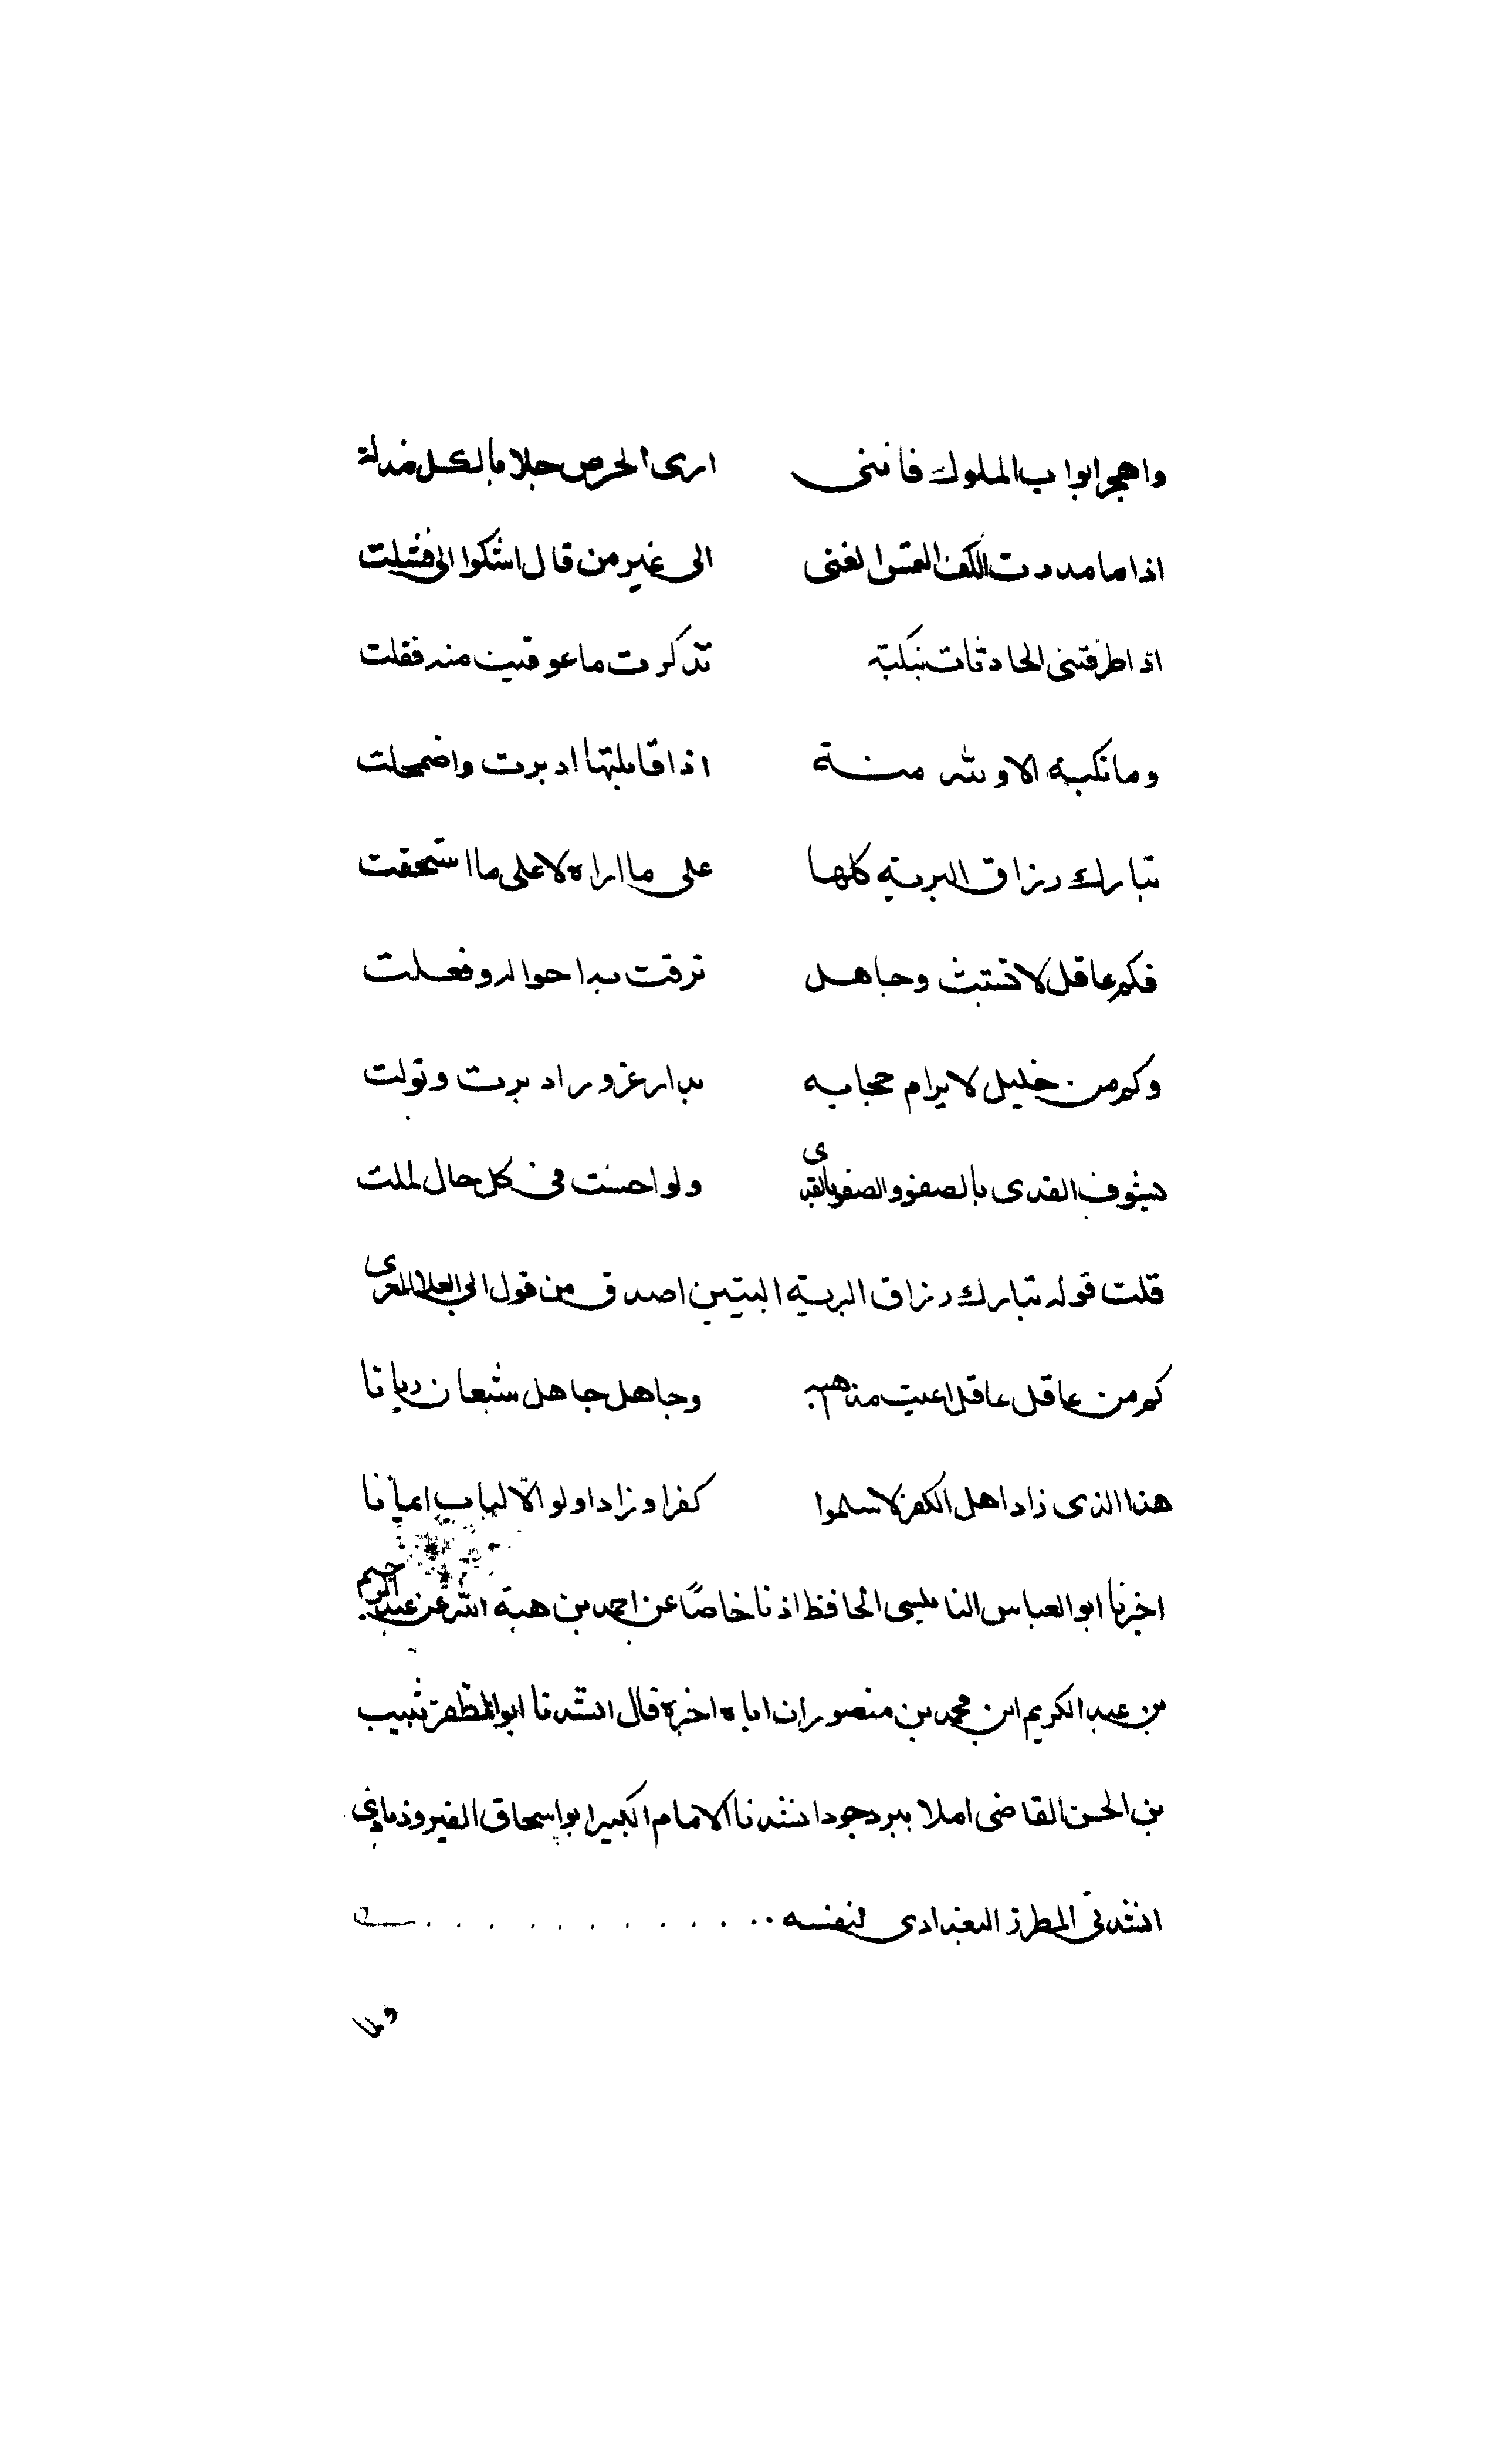 واهجر ابواب الملوك فاننى ارى الحرص جلابا لكل مذلة
اذا ما مددت الكف التمس الغنى الى غير من قال اشكوا الى فشلت
اذا طرقتنى الحادثات بنكبة تذكرت ما عوقبت منه فقلت
وما نكبة الا ولله منة اذا قابلتها ادبرت واضمحلت
تبارك رزاق البرية كلها على ما اراه لا على ما استحقت
فكم عاقل لا تستبث وجاهل ترقت به احواله وفعلت
وكم من خليل لا يرام حجابه بدار غرور ادبرت وتولت
تشوف القذى بالصفو والصفو بالقذى ولو احسنت فى كل حال لملت
قلت قوله تبارك رزاق البرية البيتين اصدق من قول ابى العلا المعرى
كم من عاقل عاقل اعيت مذاهبه وجاهل جاهل شبعان ريانا
هذا الذى زاد اهل الكفر لا سلموا كفرا وزاد اولو الالباب ايمانا
اخبرنا ابو العباس النابلسى الحافظ اذنا خاصًا عن احمد بن هبة الله عن عبد الرحيم
بن عبد الكريم ابن محمد بن منصور ان اباه اخبره قال انشدنا ابو المظفر شبيب
بن الحسن القاضى املا ببروجرد انشدنا الامام الكبير ابو اسحاق الفيروذبادى
انشدنى المطرز البغدادى لنفسه